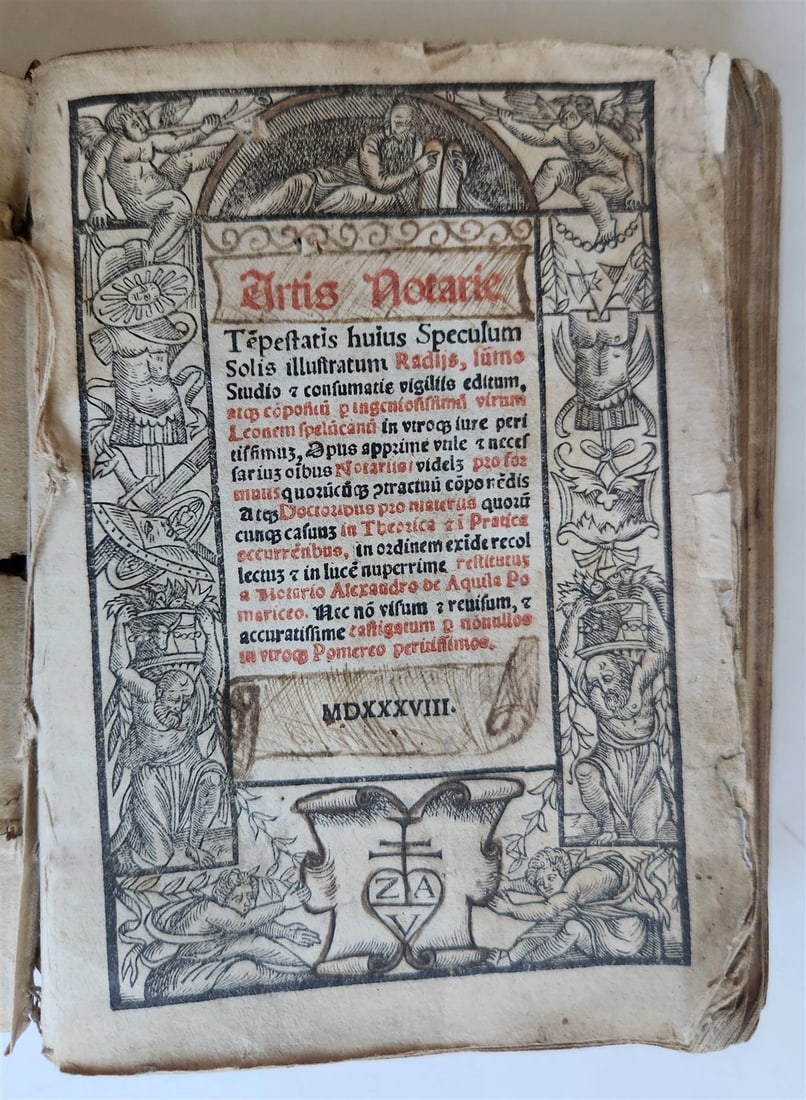 Artis Notarie
Tẽpestatis huius Speculum
Solis illustratum Radijs, sũmo
Studio ⁊ consumatis vigiliis editum,
atqꝫ cõpositũ ꝑ ingeniosissimũ virum
Leonem speluncanũ in vtroqꝫ iure peri
tissimuꝫ, Opus apprime vtile ⁊ neces
sariuꝫ oĩbus Notariis/ videlꝫ pro for
mulis quorũcũqꝫ ꝯtractuũ cõponẽdis
Atqꝫ Doctoribus pro materiis quorũ
cunqꝫ casuuꝫ in Theorica ⁊ ĩ Pratica
occurrẽtibus, in ordinem exĩde recol
lectuꝫ ⁊ in lucẽ nuperrime restitutuꝫ
a Notario Alexandro de Aquila Po
mariceo. Nec nõ visum ⁊ reuisum, ⁊
accuratissime castigatum ꝑ nõnullos
in vtroqꝫ Pomereo peritissimos.
MDXXXVIII.
Z A
V